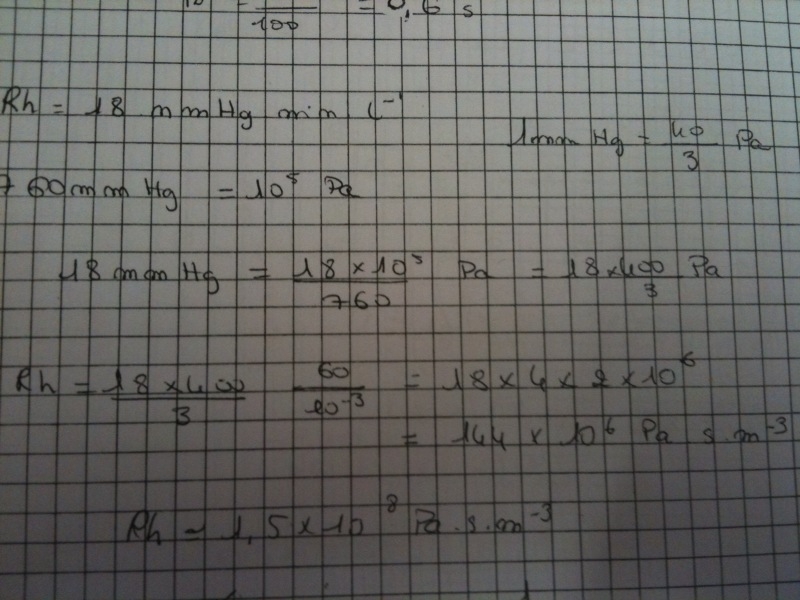 100 = 0,6 s
Rh = 18 mmHg min L⁻¹
1mm Hg = 40/3 Pa
760mm Hg = 10⁵ Pa
18 mm Hg = 18 × 10⁵/760 Pa = 18 × 400/3 Pa
Rh = 18 × 400/3 60/10⁻³ = 18 × 4 × 2 × 10⁶
= 144 × 10⁶ Pa s.m⁻³
Rh = 1,5 × 10⁸ Pa.s.m⁻³